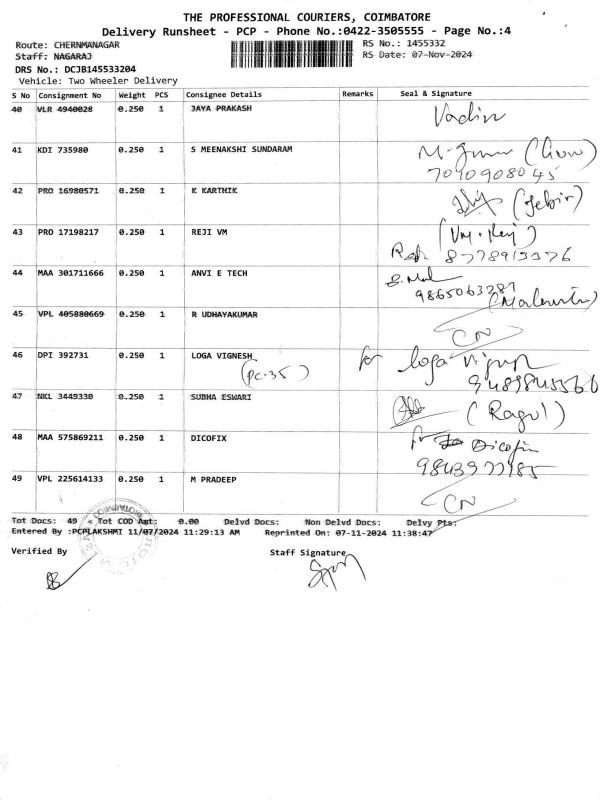 THE PROFESSIONAL COURIERS, COIMBATORE
Delivery Runsheet - PCP - Phone No.:0422-3505555 - Page No.:4
Route: CHERNMANAGAR RS No.: 1455332
Staff: NAGARAJ RS Date: 07-Nov-2024
DRS No.: DCJB145533204
Vehicle: Two Wheeler Delivery
S No Consignment No Weight PCS Consignee Details Remarks Seal & Signature
40 VLR 4940028 0.250 1 JAYA PRAKASH
41 KDI 735980 0.250 1 S MEENAKSHI SUNDARAM
7010908045
42 PRO 16980571 0.250 1 K KARTHIK
43 PRO 17198217 0.250 1 REJI VM
44 MAA 301711666 0.250 1 ANVI E TECH
9865063287
45 VPL 405880669 0.250 1 R UDHAYAKUMAR
CN
46 DPI 392731 0.250 1 LOGA VIGNESH for Loga
(PC-35)
47 NKL 3449330 0.250 1 SUBHA ESWARI (Ragul)
48 MAA 575869211 0.250 1 DICOFIX for Dicofix
49 VPL 225614133 0.250 1 M PRADEEP
CN
Tot Docs: 49 Tot COD Amt: 0.00 Delvd Docs: Non Delvd Docs: Delvy Pts:
Entered By :PCPLAKSHMI 11/07/2024 11:29:13 AM Reprinted On: 07-11-2024 11:38:47
Verified By Staff Signature